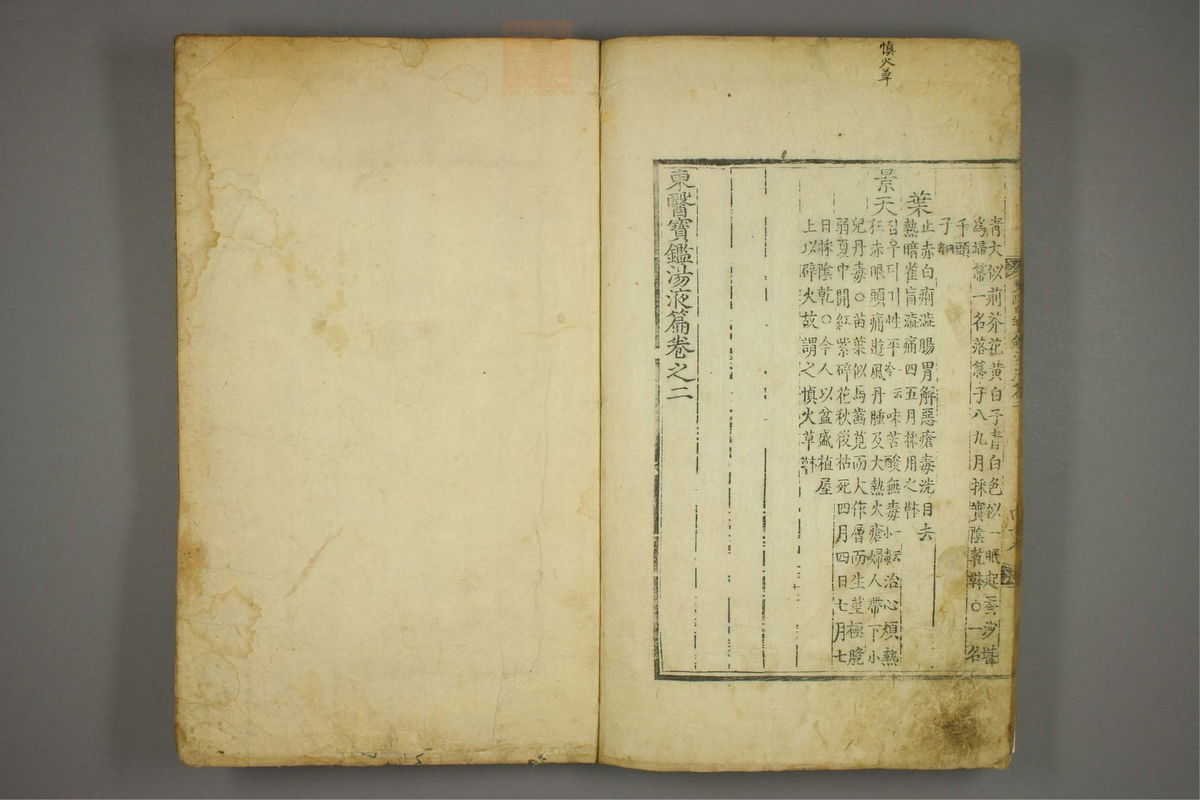 慎火草
青大似荊芥花黃白子青白色似一眠起蚕沙堪
爲掃箒一名落箒子八九月採實陰乾本草○一名
千頭
子
葉
止赤白痢澁腸胃解惡瘡毒洗目去
熱暗雀盲澁痛四五月採用之本草
景天
집우디기性平一云冷味苦酸無毒一云小毒治心煩熱
狂赤眼頭痛遊風丹腫及大熱火瘡婦人帶下小
兒丹毒○苗葉似馬齒莧而大作層而生莖極脆
弱夏中開紅紫碎花秋後枯死四月四日七月七
日採陰乾○今人以盆盛植屋
上以辟火故謂之愼火草本草
東醫寶鑑湯液篇卷之二